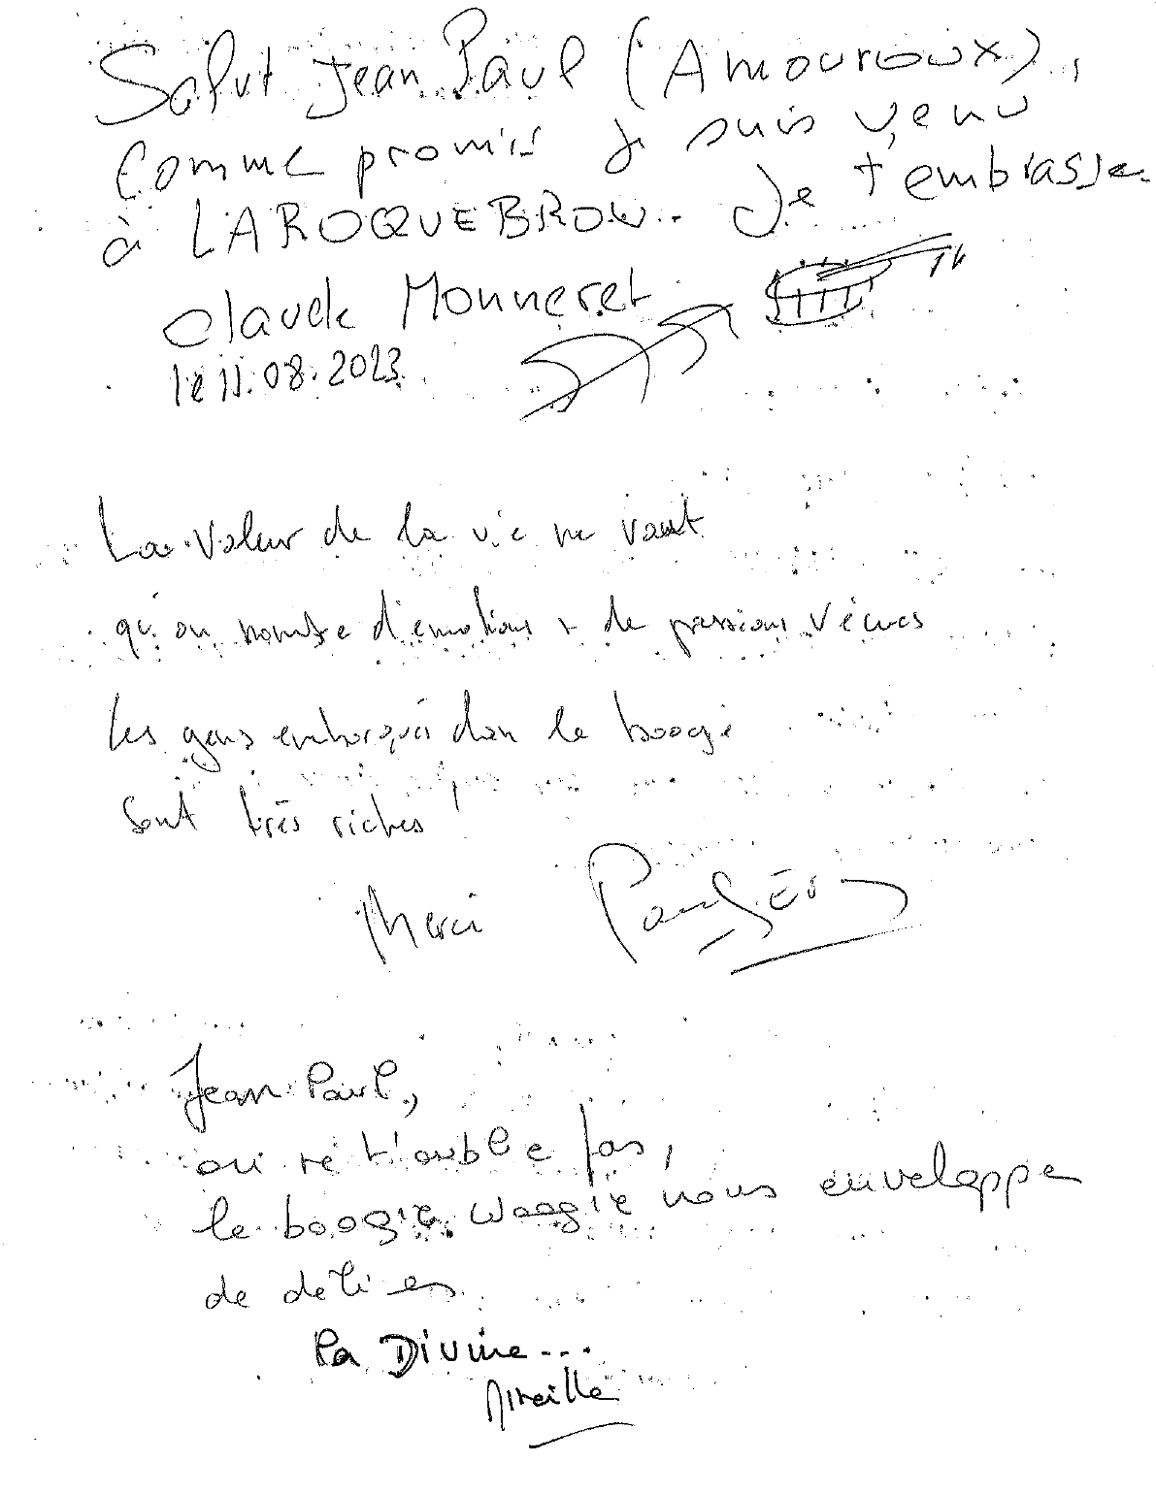 Salut Jean Paul (Amouroux),
Comme promis je suis venu
à LAROQUEBROU. Je t'embrasse
Claude Monneret
le 11.08.2023
La valeur de la vie ne vaut
qu'au nombre d'émotions + de passions vécues
Les gens embarqués dans le boogie
sont très riches
Merci
Jean Paul,
on ne t'oublie pas,
le boogie woogie nous enveloppe
de délices
la Divine...
Mireille